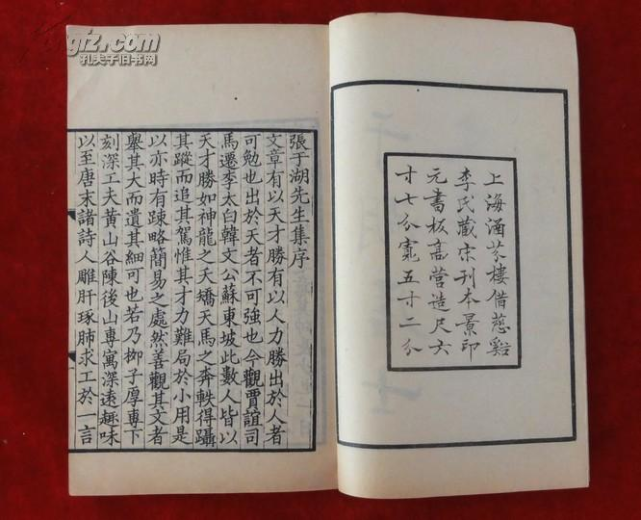 gfz.com
孔夫子旧书网
上海涵芬樓借慈谿
李氏藏宋刊本景印
元書板高營造尺六
寸七分寬五寸二分
張于湖先生集序
文章有以天才勝有以人力勝出於人者
可勉也出於天者不可強也今觀賈誼司
馬遷李太白韓文公蘇東坡此數人皆以
天才勝如神龍之夭矯天馬之奔軼得躡
其蹤而追其駕惟其才力難局於小用是
以亦時有踈略簡易之處然善觀其文者
舉其大而遺其細可也若乃柳子厚專下
刻深工夫黄山谷陳後山專寓深遠趣味
以至唐末諸詩人雕肝琢肺求工於一言